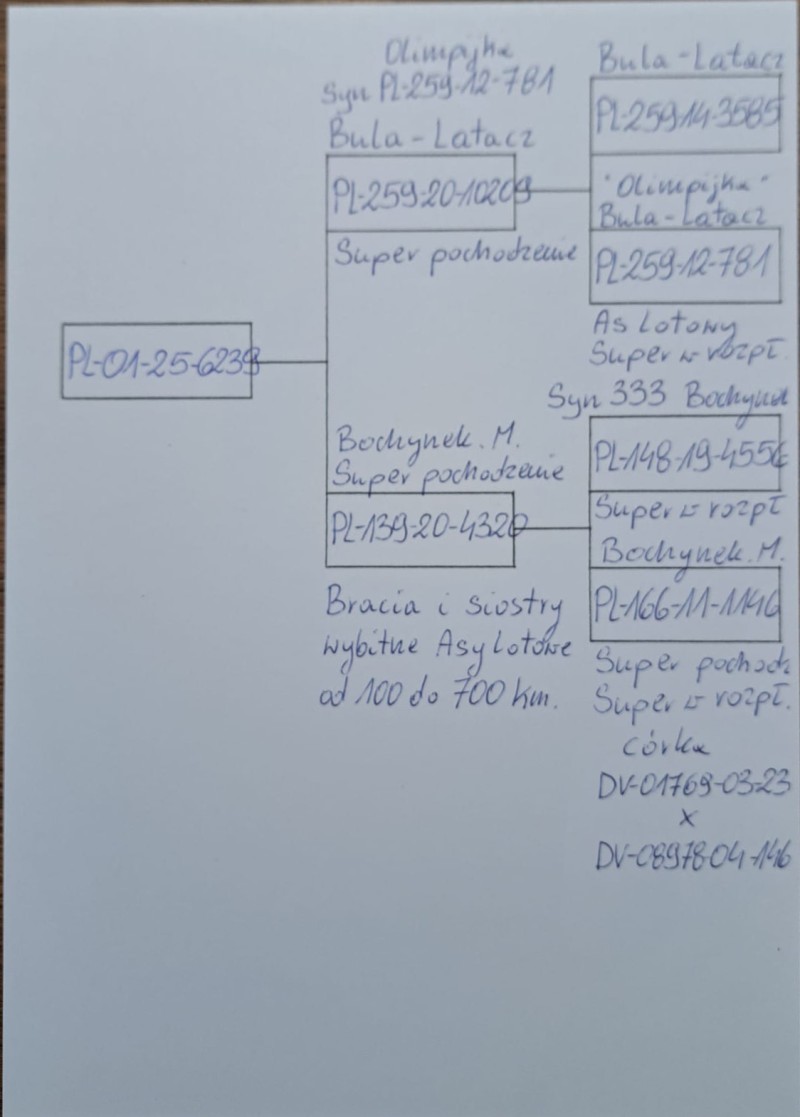 Olimpijka
Syn PL-259-12-781
Bula-Latacz
PL-259-20-10209
Super pochodzenie
PL-01-25-6239
Bochynek. M.
Super pochodzenie
PL-139-20-4320
Bracia i siostry
wybitne Asy Lotowe
od 100 do 700 km.
Bula-Latacz
PL-259-14-3585
"Olimpijka"
Bula-Latacz
PL-259-12-781
As Lotowy
Super w rozpł.
Syn 333 Bochynek
PL-148-19-4556
Super w rozpł
Bochynek. M.
PL-166-11-1146
Super pochodz
Super w rozpł.
córka
DV-01769-03-23
x
DV-08978-04-146